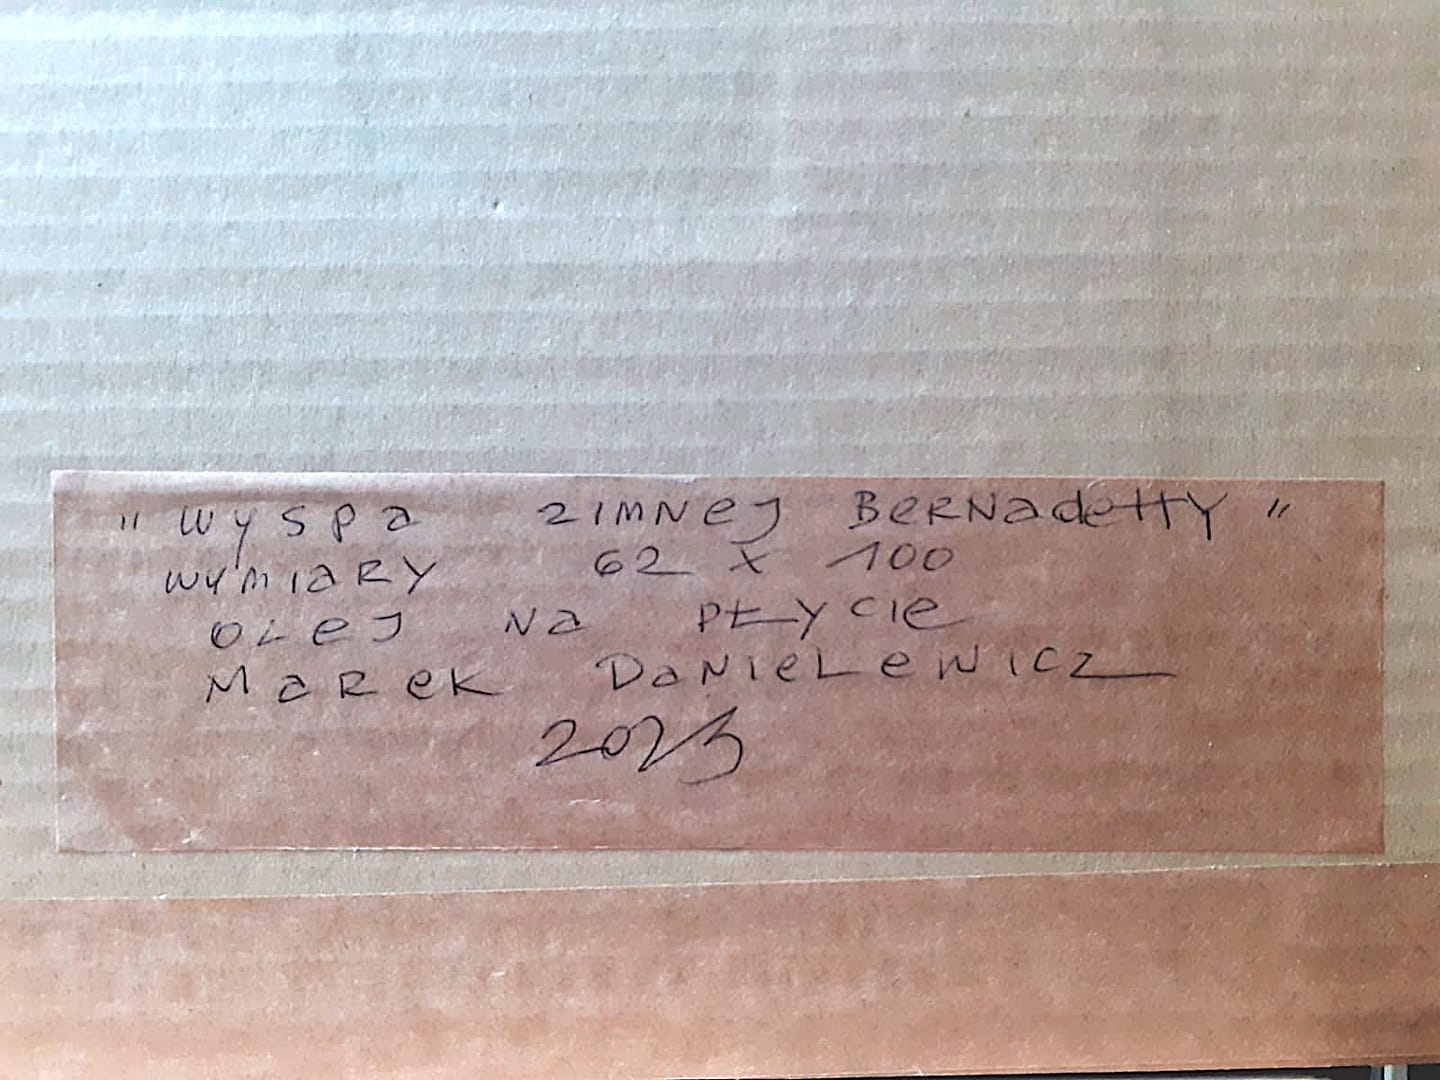 "WYSPA ZIMNEJ BERNADETTY"
WYMIARY 62 X 100
OLEJ NA PŁYCIE
MAREK DANIELEWICZ
2023